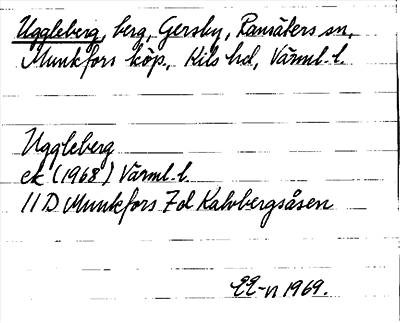 Uggleberg, berg, Gersby, Ransäters sn,
Munkfors köp., Kils hd, Värml. l.
Uggleberg
ek (1968) Värml. l.
11 D Munkfors 7d Kalvbergsåsen
EE-n 1969.